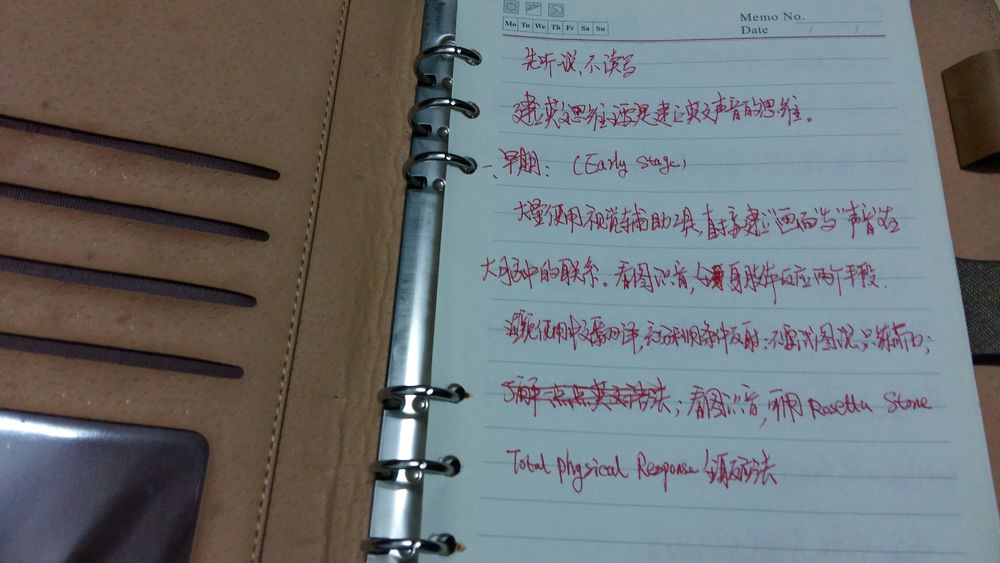 Mo Tu We Th Fr Sa Su
Memo No.
Date / /
先听说、不读写
建立英文思维主要是建立英文声音的思维。
一、早期：（Early Stage）
大量使用视觉辅助工具，直接建立“画面”与“声音”在
大脑中的联系。看图识音，全身肢体反应两个手段．
避免使用中文翻译，充分利用条件反射：不要试图说，只练耳；
看图识音，可用 Rosetta Stone
Total Physical Response 全身反应法